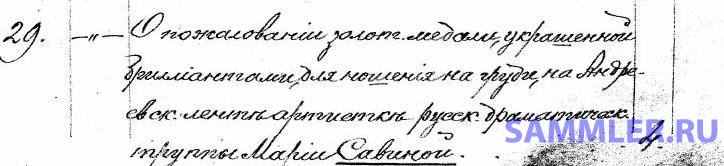 29. —„— О пожалованіи золот. медали, украшенной
брилліантами, для ношенія на груди, на Андре-
евск. лентѣ артисткѣ русск. драматическ.
труппы Маріи Савиной. 4.
SAMMLER.RU